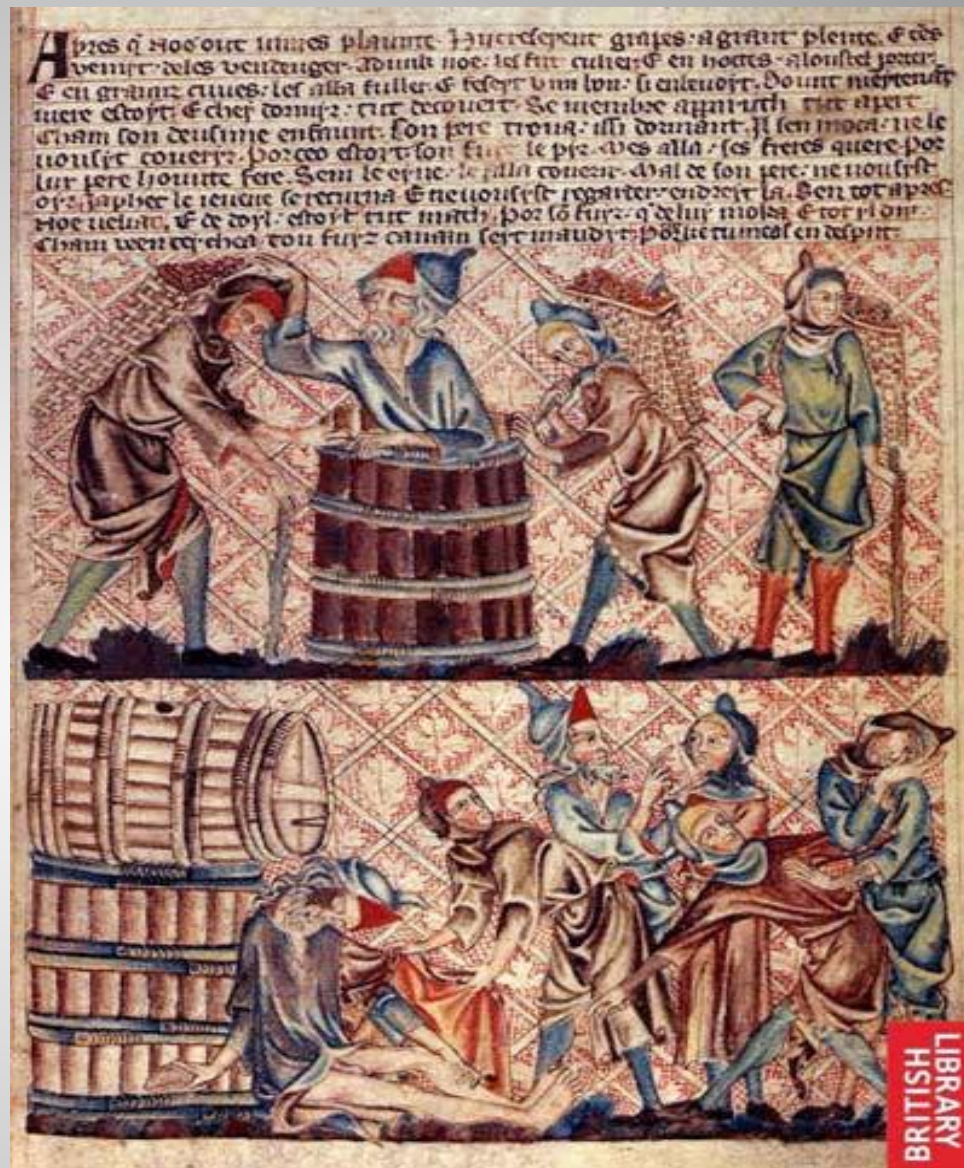 Apres q̄ Noe out vinnes plaunte. Hucreserent grapes. a graunt plente. E
venirt. deles vendenger. Adunk noe. les fut culier. E en hottes. a loustel porter.
E en graunz cuves. les alla fuller. E feseyt vin bon. si enlevoyt. Dount
ivere estoyt. E cheȝ dormir. tut decovert. Se membre apparuth tut apert
Cham son deusime enfaunt. Son pere trova. issi dormant. Il sen moca. ne le
vousyt coveryr. Por ceo estoyt son le pyr. Mes alla. ses freres quere. Por
lur pere hounte fere. Sem le eyne. le alla coverir. Mal de son pere. ne vousyst
oyr. Japhet le se returna E ne vousyst regarder. endreyt la. Ben tot apres
Noe veilat. E de doyl. estoyt tut math. Por sō fuyz. q̄ de luy moka E tot yl dit.
Cham ton fuyz canaan seyt maudyt. tu mes en despyt.
BRITISH
LIBRARY